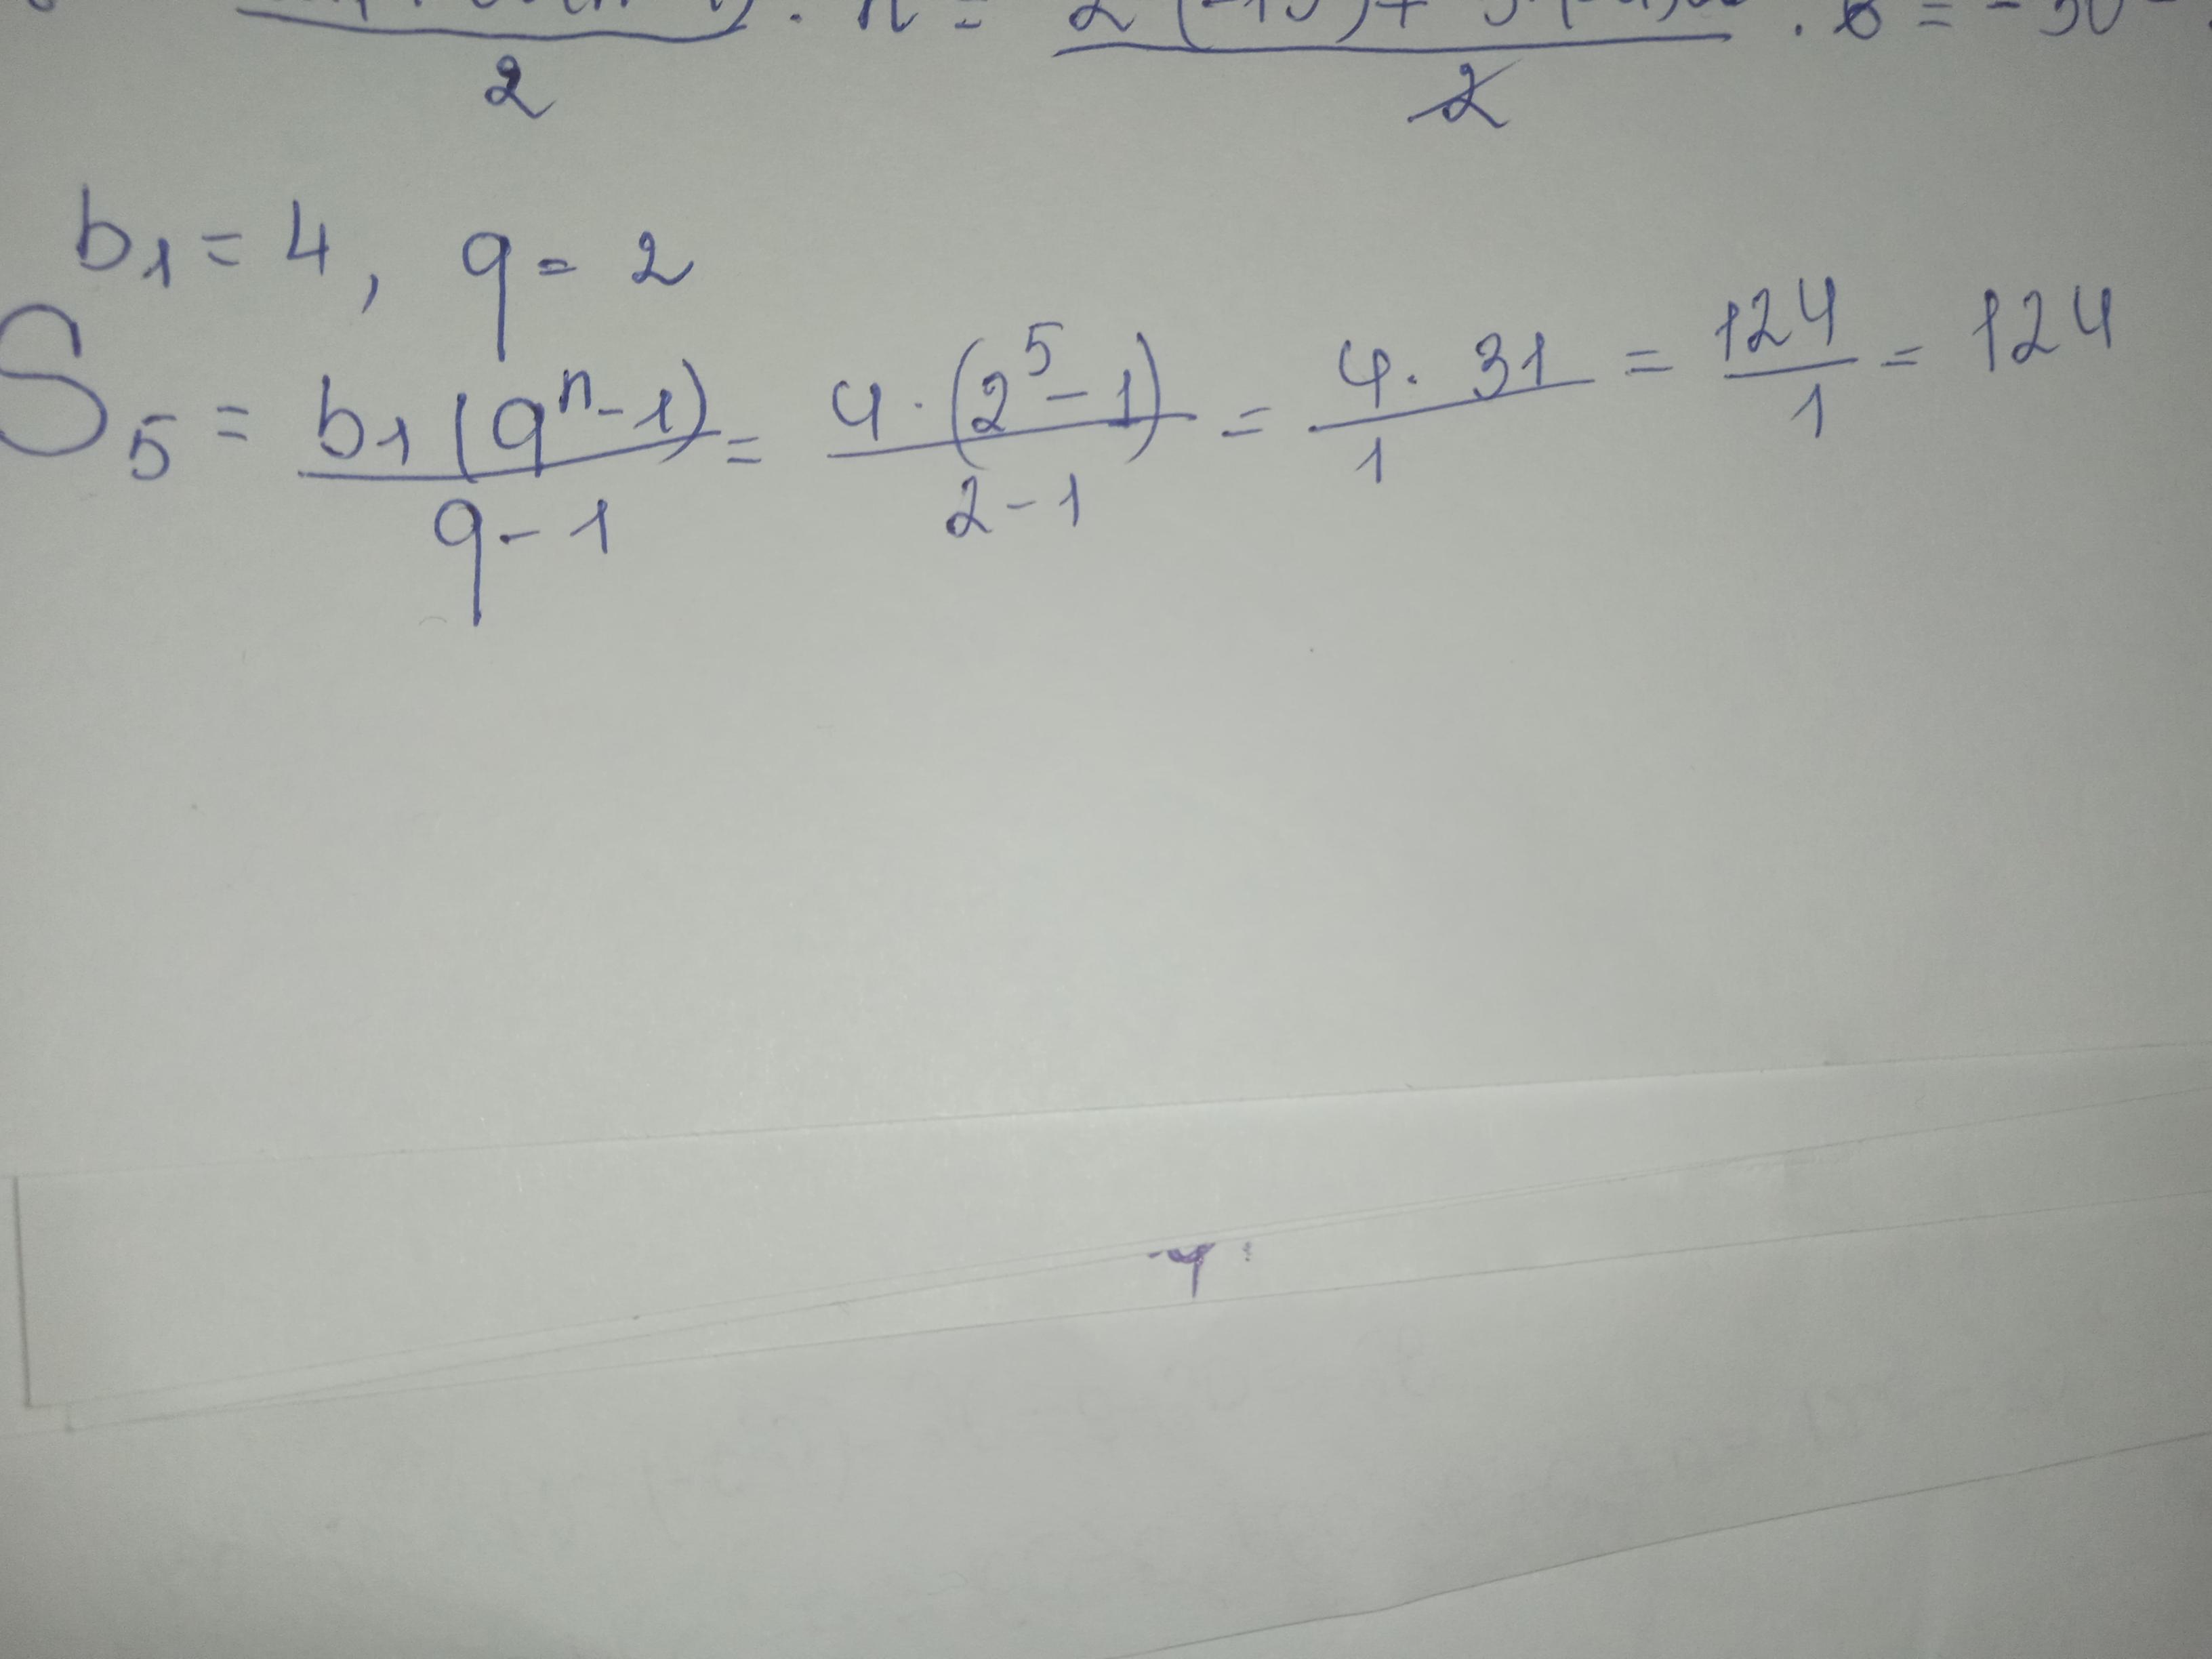 2 · n = 2 2 = -30
b₁ = 4, q = 2
S₅ = b₁(qⁿ-1)/q-1 = 4·(2⁵-1)/2-1 = 4·31/1 = 124/1 = 124